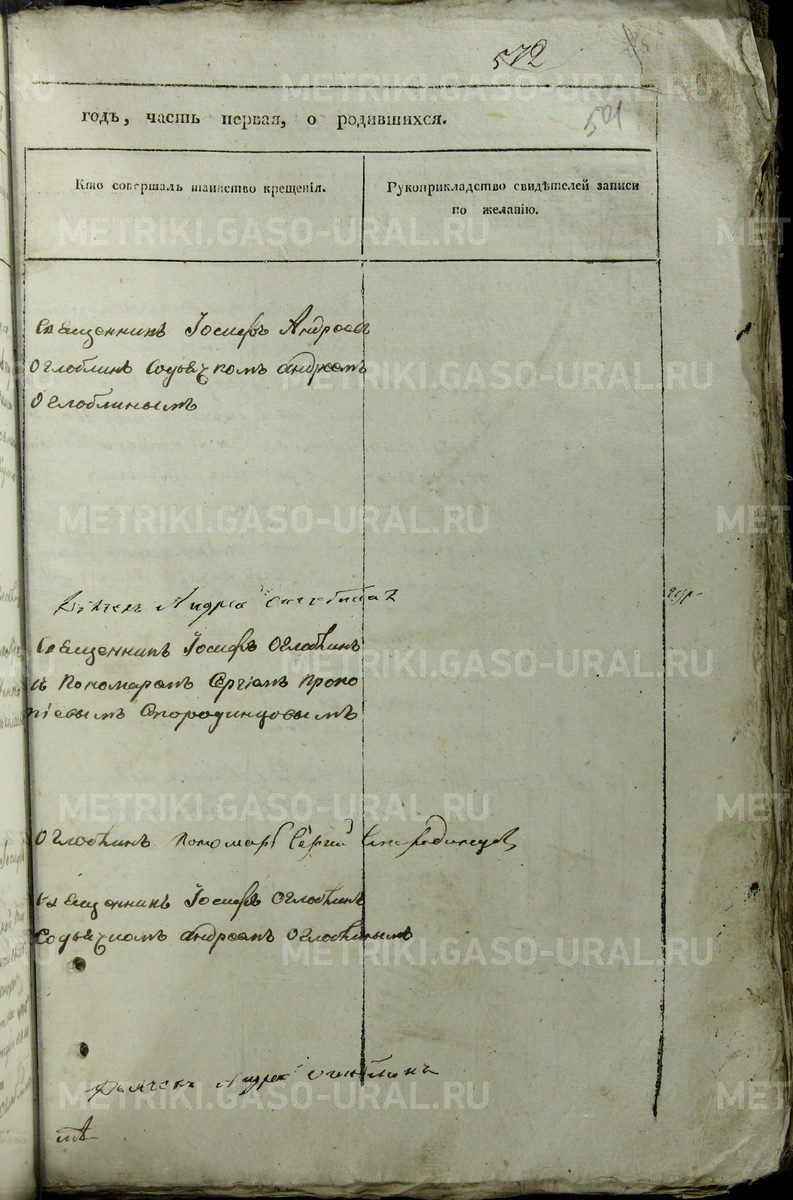 572
501
годъ, часть первая, о родившихся.
Кто совершалъ таинство крещенія.
Рукоприкладство свидѣтелей записи
по желанію.
священникъ Іосифъ Андреевъ
Оглоблинъ Содьячкомъ андреемъ
Оглоблинымъ
дьячекъ Андрей
священникъ Іосифъ Оглоблинъ
съ Пономаремъ Сергіемъ Проко
піевымъ Стородинцовымъ
Оглоблинъ пономарь Сергій Стародинцовъ
священникъ Іосифъ Оглоблинъ
Содьячкомъ андреемъ Оглоблинымъ
дьячекъ Андрей Оглоблинъ
METRIKI.GASO-URAL.RU